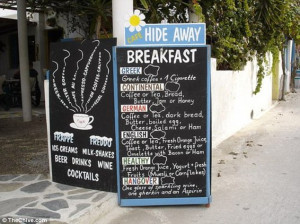 CAFE
HIDE AWAY
BREAKFAST
GREEK
Greek coffee + 1 Cigarette
CONTINENTAL
Coffee or Tea, Bread,
Butter, Jam or Honey
GERMAN
Coffee or Tea, dark bread,
Butter, boiled egg,
Cheese, Salami or Ham
ENGLISH
Coffee or Tea, Fresh Orange Juice
Toast, Butter, Fried eggs or
Omelette with Bacon or Ham
HEALTHY
Fresh Orange Juice, Yogurt + fresh
Fruits (Muesli or Cornflakes)
HANGOVER
One glass of sparkling wine,
one gherkin and an Aspirin
FRAPPE FREDDO
ICE-CREAMS MILK-SHAKES
BEER DRINKS WINE
COCKTAILS
© TheChive.com